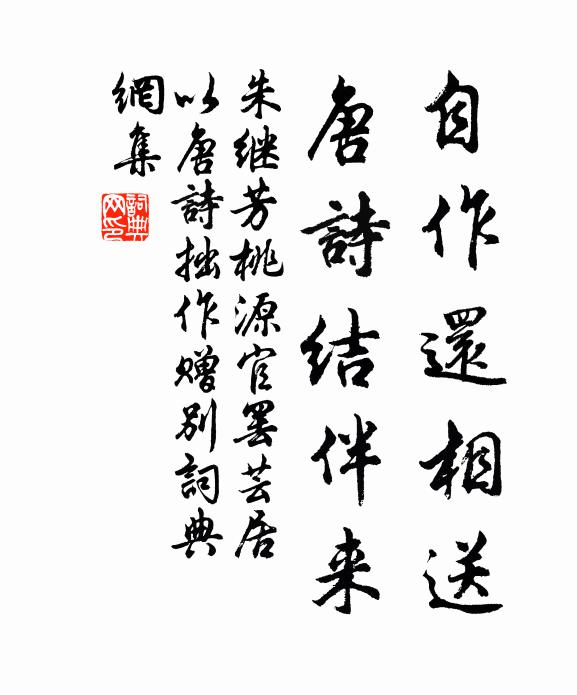 自作還相送
唐詩結伴来
朱继芳桃源官罢芸居
以唐詩拙作赠别詞典
網集
詞典
网印